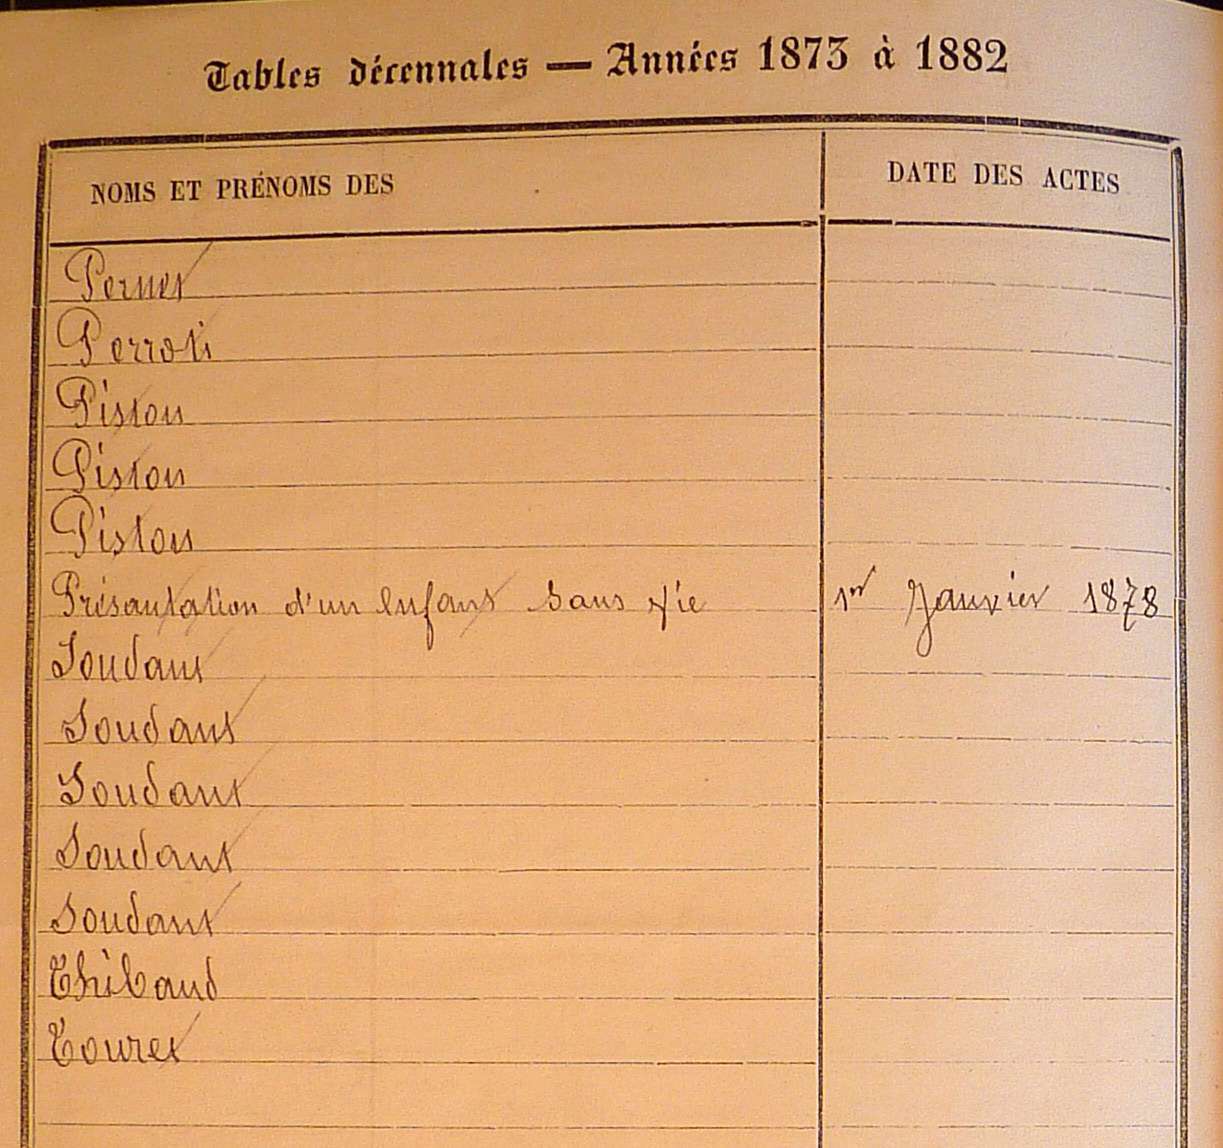 Tables décennales — Années 1873 à 1882
NOMS ET PRÉNOMS DES
DATE DES ACTES
Pernet
Perroti
Piston
Piston
Piston
Présantation d'un enfant sans vie 1er Janvier 1878
Soudant
Soudant
Soudant
Soudant
Soudant
Thibaud
Touret